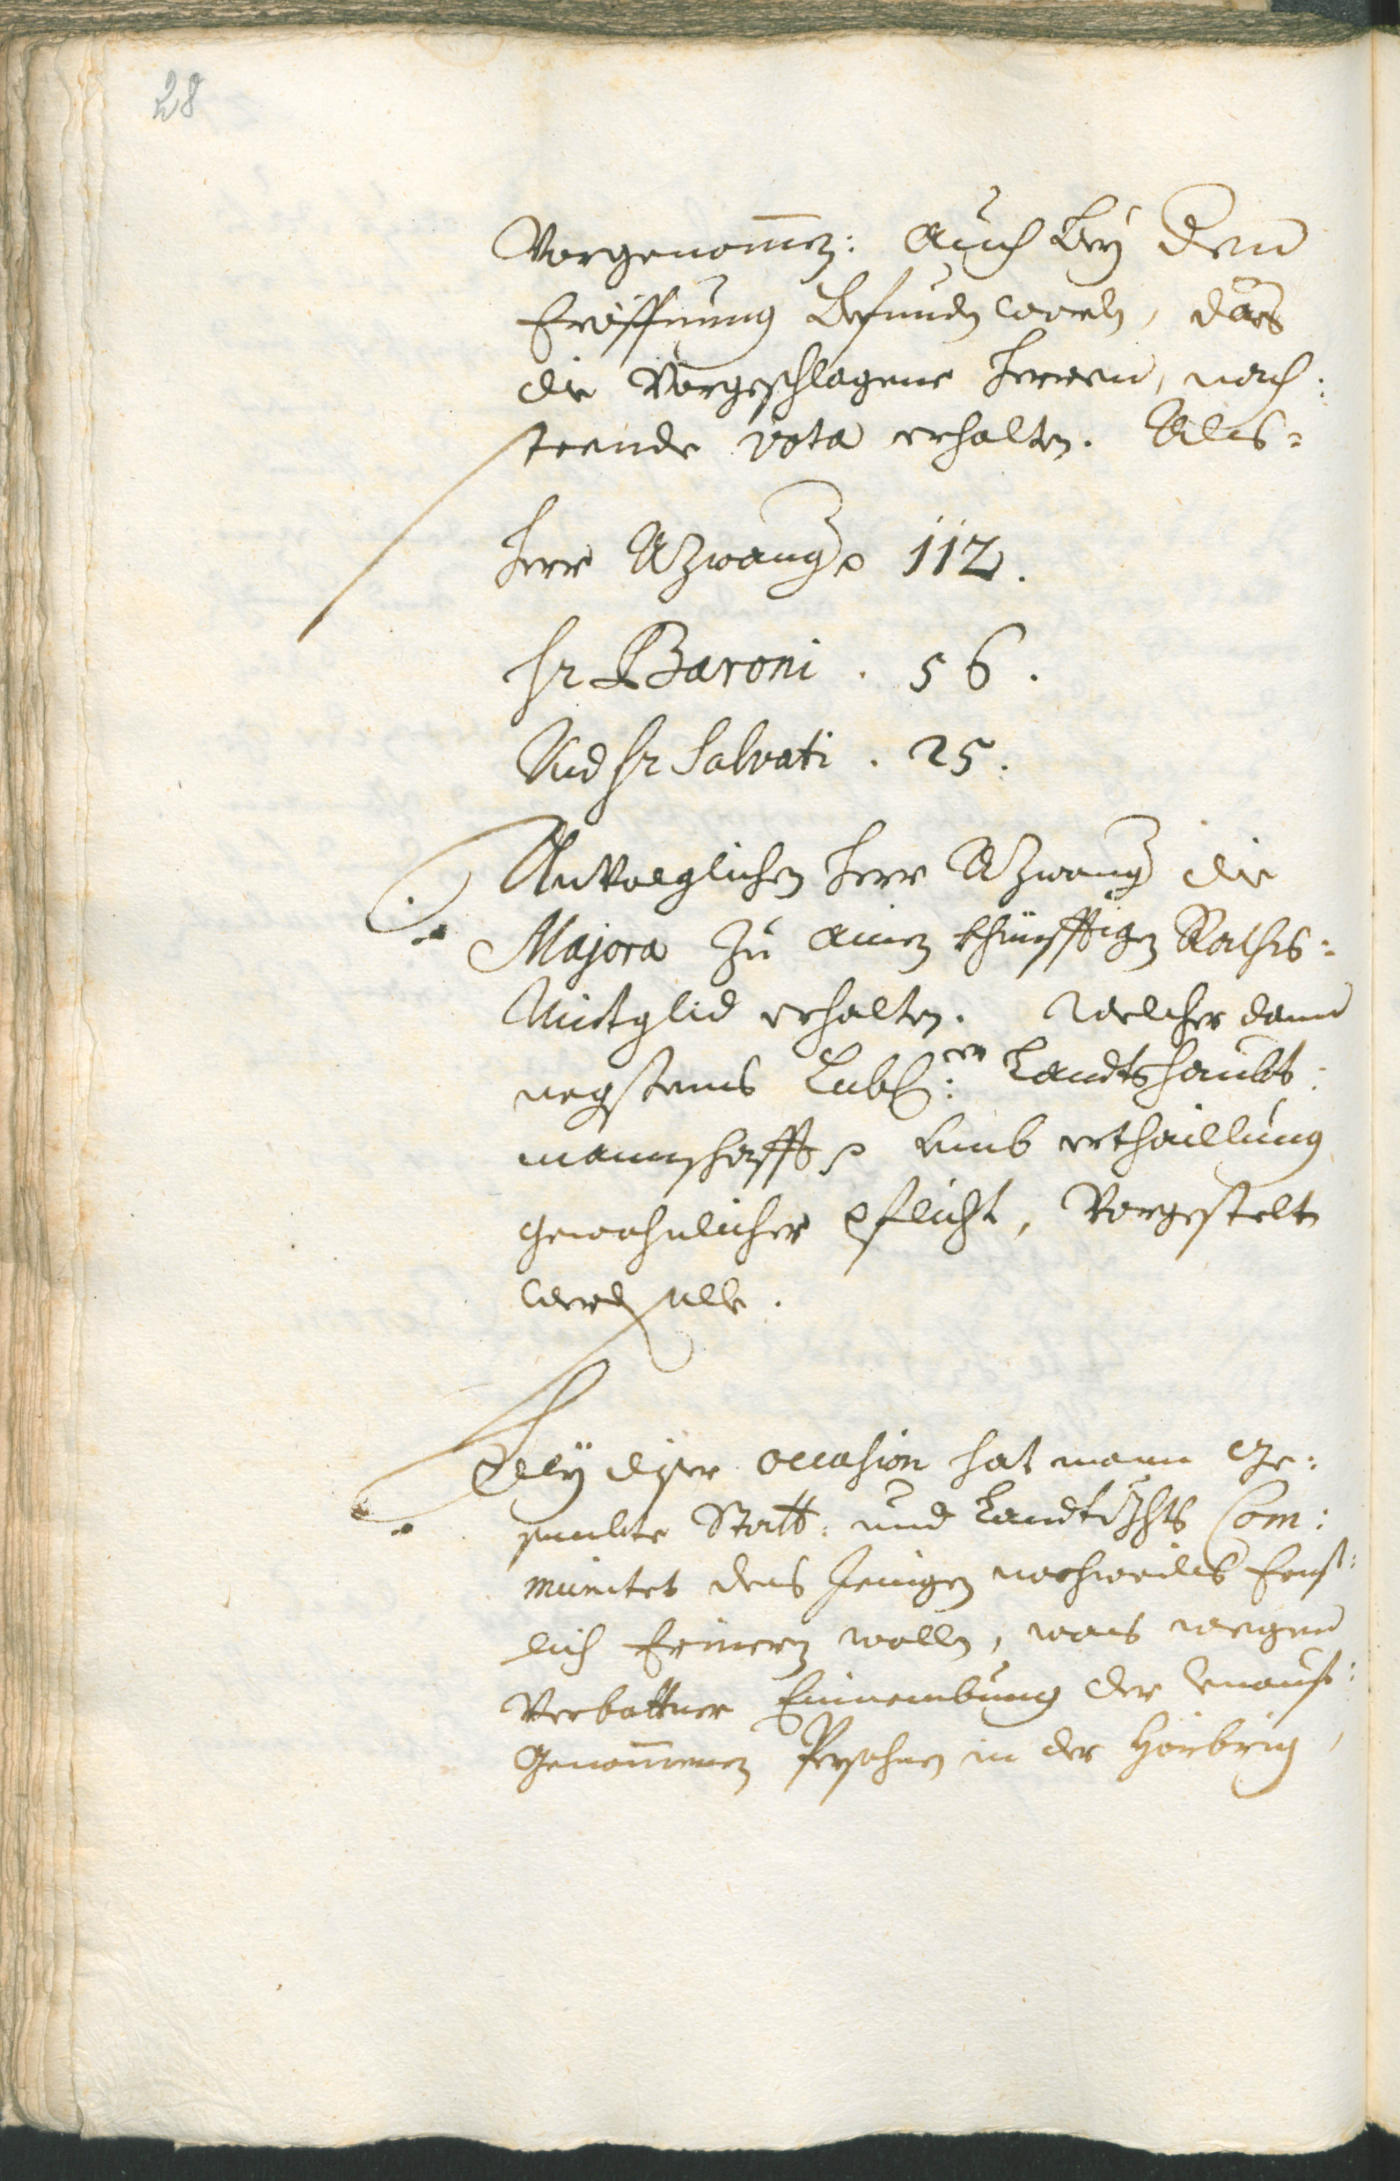 28
Vorgenom̅en: Auch Bey dern
Eröffnung Befunden worden, das
die Vorgeschlagene Herren, nach:
steende vota erhalten. Als:
Herr Azwang 112.
Hr Baroni . 56.
Und Hr Salvati . 25.
Anvolglichen Herr Azwang die
Majora zu ainen khünfftigen Raths:
Mitglid erhalten. Welcher dann
negstens Löbl: er Landtshaubt:
mannschafft umb erthaillung
gewohnlicher Pflicht, Vorgestelt
werden solle.
Bey diser occasion hat mann Ge:
sambte Statt: und Landtgrhts Com:
munitet dess Jenigen nochweills Ernst:
lich Erinern wollen, was wegen
Verbottner Einnembung der
Genom̅enen Persohnen in der Hörbrig,